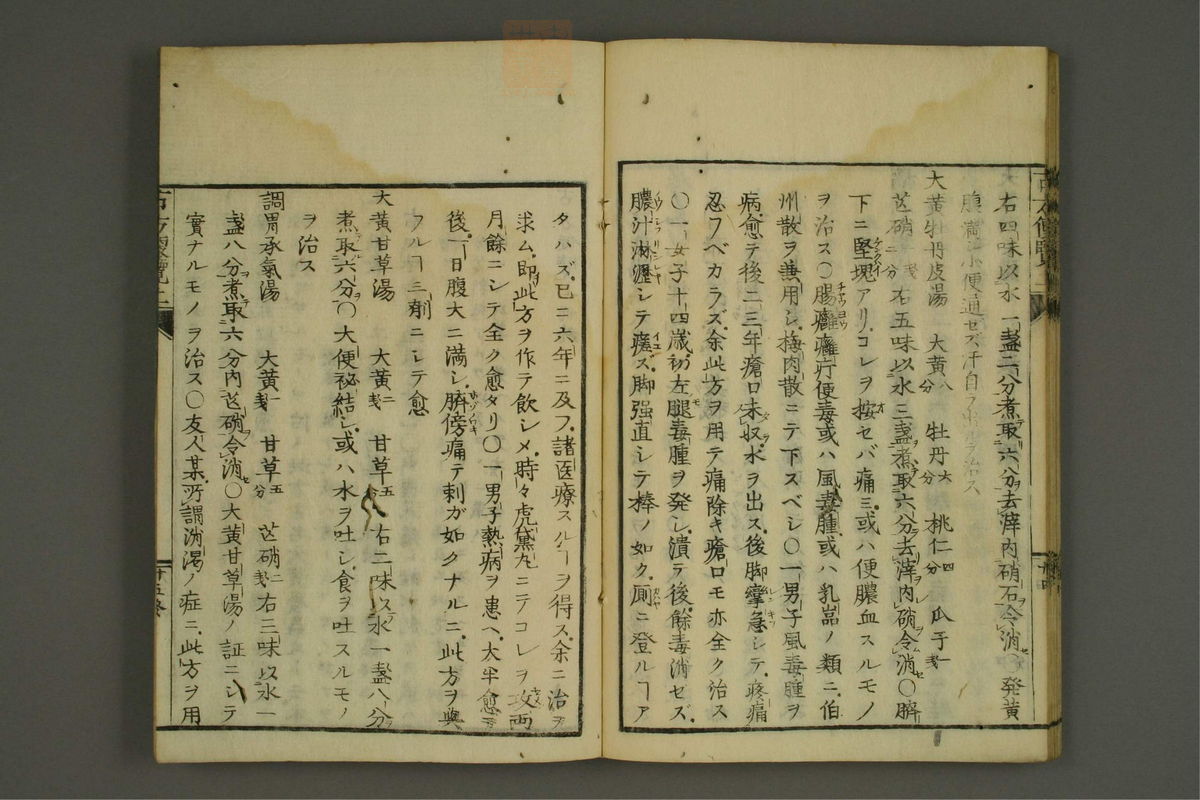 右四味以水一盞二分煮取六分去滓内硝石令消 発黄
腹満小便通セズ汗自ラ出ルヲ治ス
大黄牡丹皮湯 大黄八分 牡丹六分 桃仁四分 瓜子一戔
芒硝二戔二分 右五味以水三盞煮取六分去滓内硝令消〇臍
下ニ堅塊アリコレヲ按セバ痛ミ或ハ便膿血スルモノ
ヲ治ス〇腸癰癰疔便毒或ハ風毒腫或ハ乳岩ノ類ニ伯
州散ヲ兼用シ梅肉散ニテ下スベシ〇一男子風毒腫ヲ
病愈テ後二三年瘡口未收水ヲ出ス後脚攣急シテ疼痛
忍フベカラズ余此方ヲ用テ痛除キ瘡口モ亦全ク治ス
〇一女子十四歳初左腿毒腫ヲ発シ潰テ後餘毒消セズ
膿汁淋瀝シテ癒ズ脚強直シテ棒ノ如ク厠ニ登ルヿア
タハズ已ニ六年ニ及フ諸医療スルヿヲ得ス余ニ治ヲ
求ム即此方ヲ作テ飲シメ時々虎黛丸ニテコレヲ攻両
月餘ニシテ全ク愈タリ〇一男子熱病ヲ患ヘ大半愈テ
後一日腹大ニ満シ臍傍痛テ刺ガ如クナルニ此方ヲ與
フルヿ三劑ニシテ愈
大黄甘草湯 大黄二戔 甘草五分 右二味以水一盞八分
煮取六分〇大便祕結シ或ハ水ヲ吐シ食ヲ吐スルモノ
ヲ治ス
調胃承氣湯 大黄一戔 甘草五分 芒硝二戔 右三味以水一
盞八分煮取六分内芒硝令消〇大黄甘草湯ノ証ニシテ
實ナルモノヲ治ス〇友人某所謂消渇ノ症ニ此方ヲ用
古方便覽 上
廿五